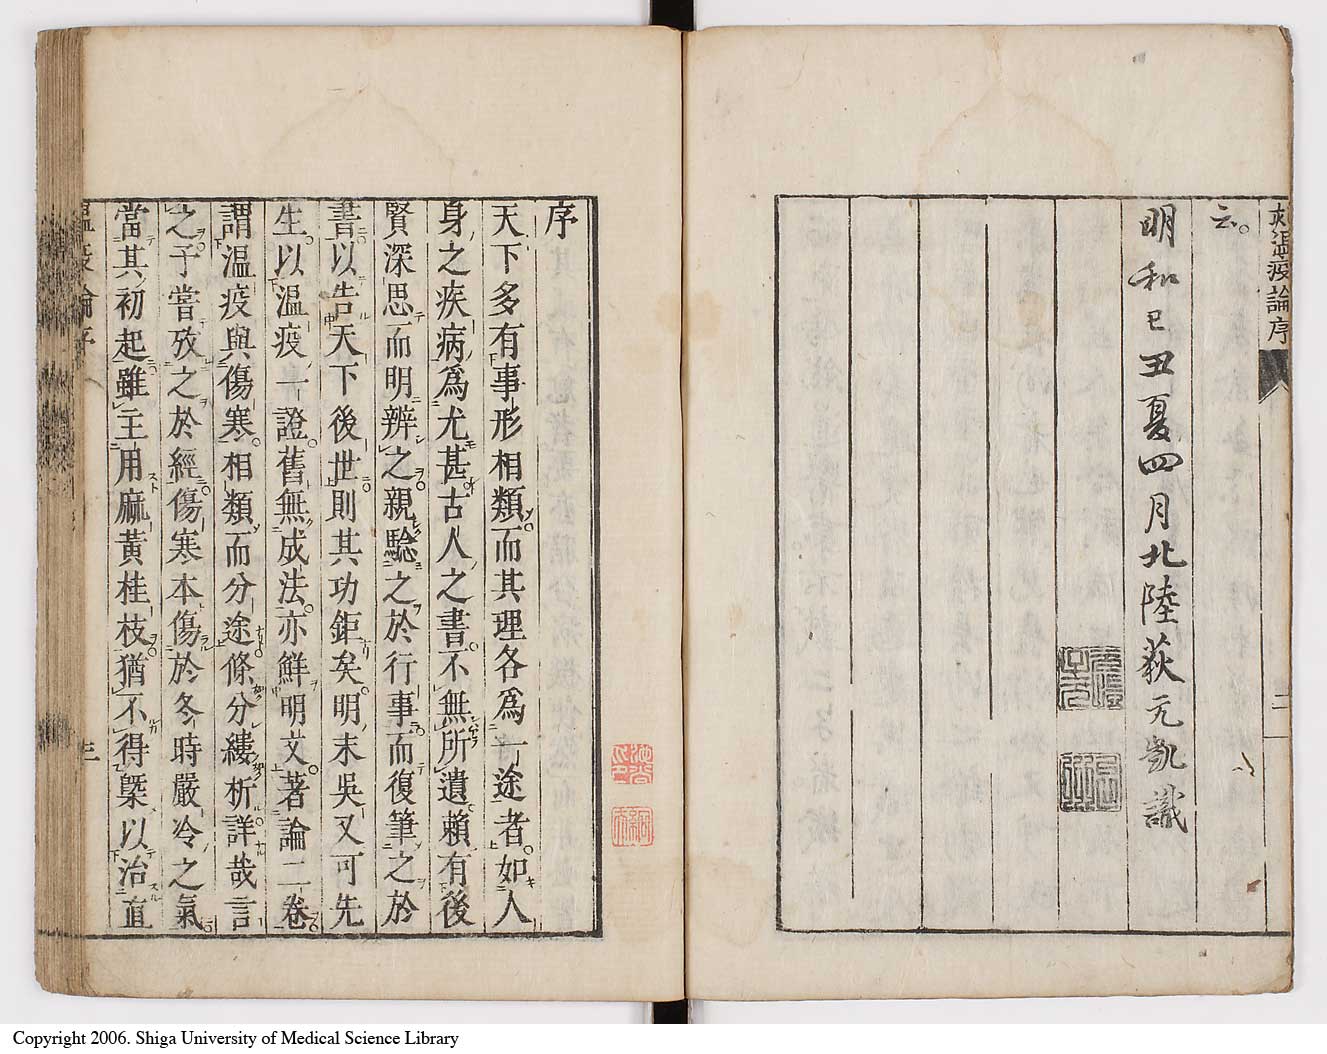 刻温疫論序
二
云。
明和己丑夏四月北陸荻元凱識
序
天下多有事形相類而其理各爲一途者。如人
身之疾病爲尤甚古人之書。不無所遺賴有後
賢深思而明辨之親騐之於行事而復筆之於
書以告天下後世則其功鉅矣。明末吳又可先
生以溫疫一證舊無成法。亦鮮明文。著論二卷
謂溫疫與傷寒。相類而分途條分縷析詳哉言
之予嘗攷之於經傷寒本傷於冬時嚴冷之氣
當其初起雖主用麻黃桂枝猶不得槩以治直
溫疫論序
三
Copyright 2006. Shiga University of Medical Science Library